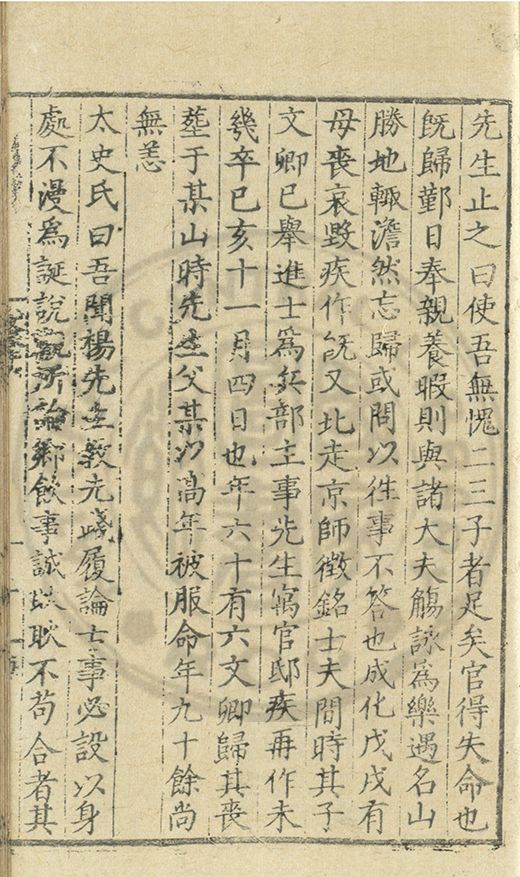 先生止之曰使吾無愧二三子者足矣官得失命也
既歸鄞日奉親養暇則與諸大夫觴詠為樂遇名山
勝地輙澹然忘歸或問以徃事不答也成化戊戌有
母喪哀毀疾作旣又北走京師徴銘士夫間時其子
文卿已舉進士為兵部主事先生寓官邸疾再作未
幾卒己亥十一月四日也年六十有六文卿歸其喪
塟于某山時先生父某以高年被服命年九十餘尚
無恙
太史氏曰吾聞楊先生教先踐履論士事必設以身
處不漫為誕說觀所論鄉飲事誠耿不苟合者其